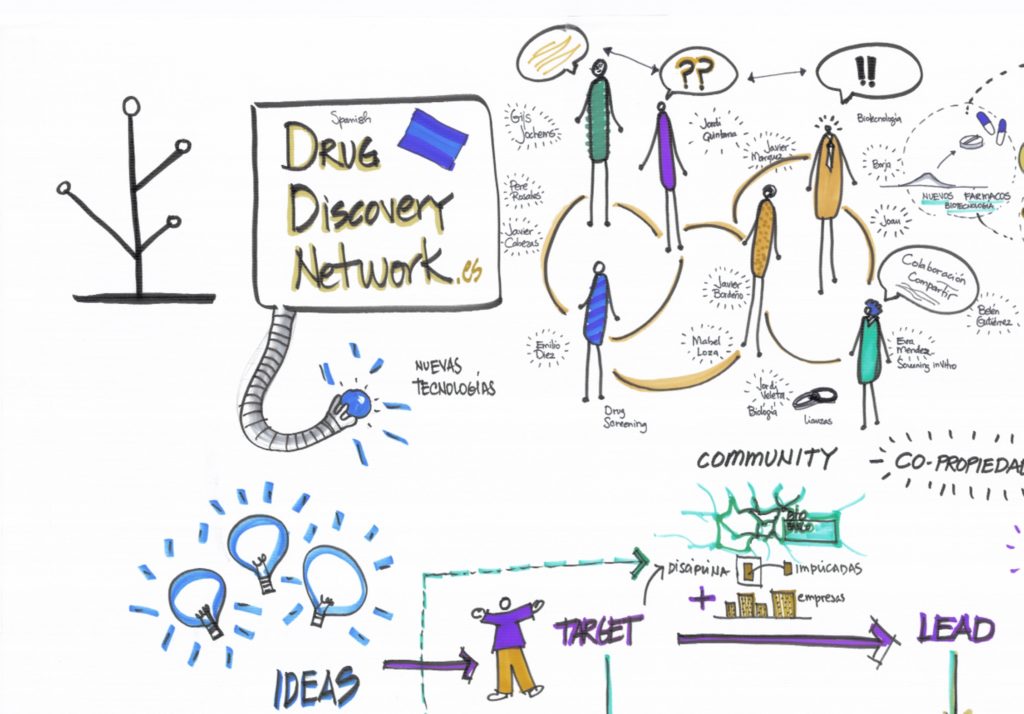 Spanish
DRUG
DISCOVERY
NETWORK.es
NUEVAS
TECNOLOGÍAS
??
!!
Gils
Jochems
Jordi
Quintana
Javier
Marquez
Biotecnologia
Borja
Joan
NUEVOS FARMACOS
BIOTECNOLOGÍA
Pere
Rosales
Javier
Cabezas
Colaboración
Compartir
Belén
Gutiérrez
Javier
Emilio
Díez
Mabel
Loza
Eva
Mendez
Screening inVitro
Jordi
Veleta
Biología
Lianzas
Drug
Screening
COMMUNITY
CO-PROPIEDAD
BIO
BANCO
DISCIPLINA
IMPLICADAS
+
empresas
TARGET
LEAD
IDEAS